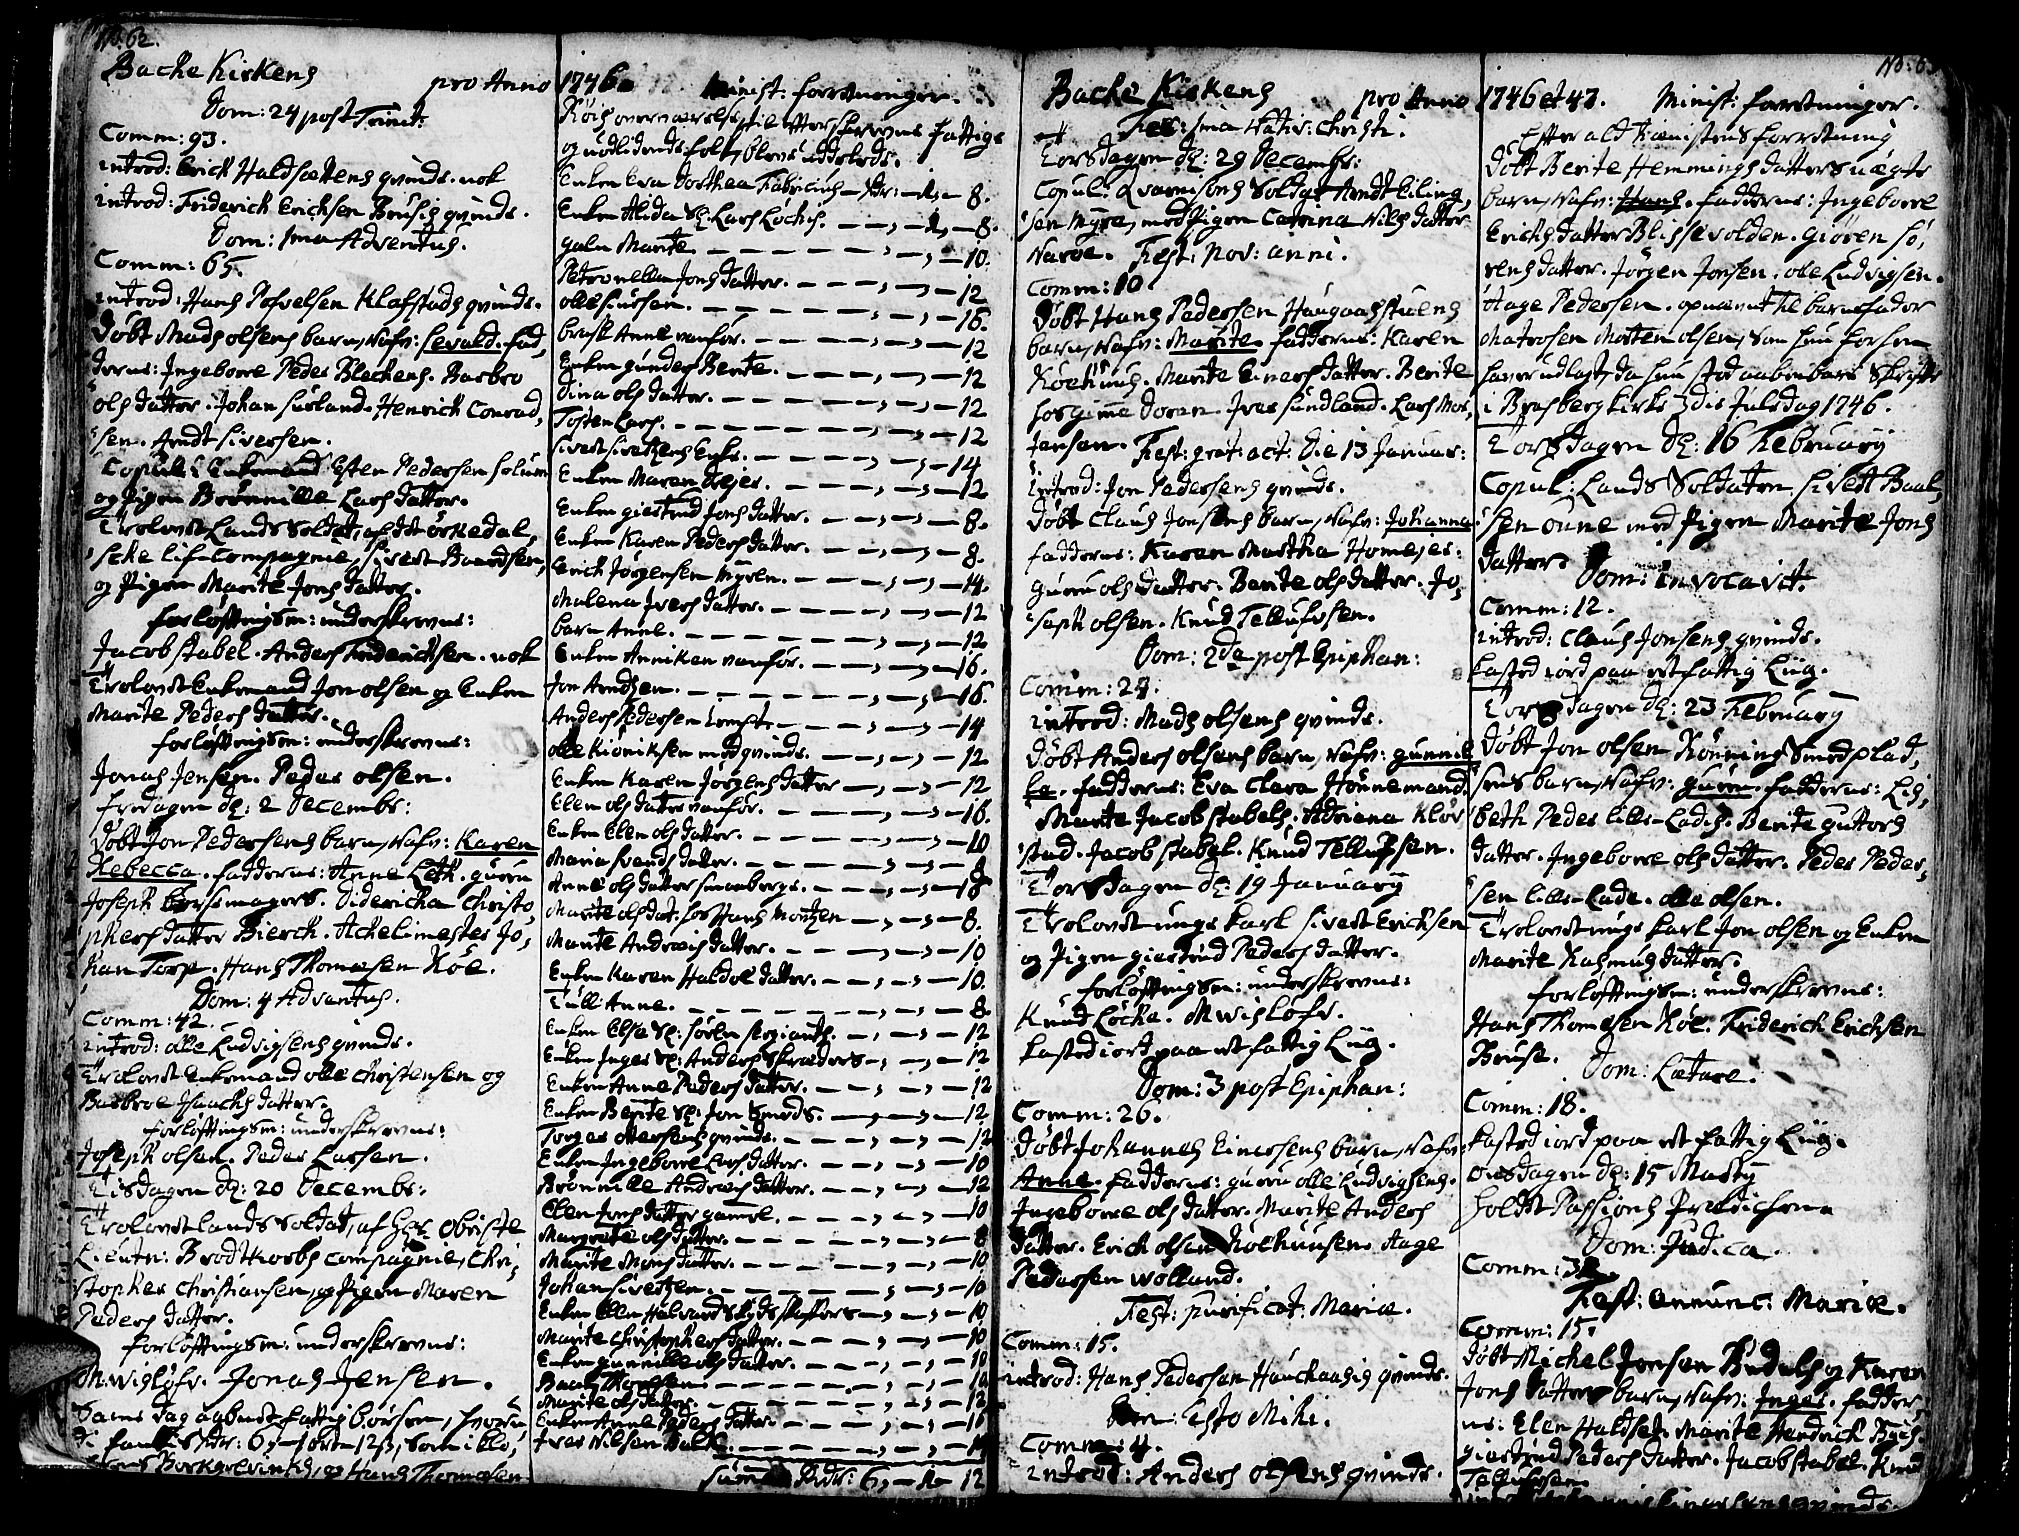 No: 62.
Bache Kirkens
pro Anno
Dom: 24 post Trinit:
Comm: 93.
introd: Erick Haldsættens qvinde. nok
introd: Friderich Erichsen Brusis qvinde.
Dom: 1ma Adventus.
Comm: 65.
introd: Hans Pofvelsen Klafstads qvinde.
Døbt Mads olsens barn, Nafn: Sevald. fad,
derne: Ingeborre Peder Bleckens. Barbro
ols datter. Johan Surland. Henrich Conrad,
sen. Arndt Siversen.
Copul: Enkemand Esten Pedersen Solum
og Pigen Brønnille Lars datter.
Trolovet Lands Soldat, af det Orkedal,
ske lif Compagnie, Sivert Baardsen,
og Pigen Marite Jons datter.
forløftningsm: underskrevne:
Jacob Stabel. Anders Friderichsen. nok
Trolovet Enkemand Jon olsen og Enken
Marite Peders datter.
forløftningsm: underskrevne:
Jonas Jensen. Peder olsen.
Fredagen d: 2 Decembr:
Døbt Jon Pedersens barn, Nafn: Karen
Rebecca. fadderne: Anne Leth. guru
Joseph Børsemagers. Didericha Christo,
phers datter Bierck. Ackelimester Jo,
han Torp. Hans Thomesen Røe.
Dom: 4 Adventus.
Comm: 42.
introd: olle Ludvigsens qvinde.
Trolovet Enkemand olle Christensen og
Barbroe Isaachs datter.
forløftningsm: underskrevne:
Joseph olsen. Peder Larsen.
Tisdagen d: 20 Decembr:
Trolovet lands Soldat, af Hr. Obriste
Lieutn: Brodtkorbs compagnie, Chri,
stopher Christiansen, og Pigen Maren
Peders datter.
forløftningsm: underskrevne:
M. Wisløfv. Jonas Jensen.
Samme dag aabnet fattig børsen, hvoru
di fantis Rdr: 6,-1 ort-12 s, som i Klo,
kerens Borkgrevinks, og Hans Thomesen
1746.
Minist: forretninger.
Røis overværelse til efterskrevne fattige
og nødlidende folk, blev uddeelede.
Enken Eva Dorthea Fabricius - Rdr: - 8.
Enken Alida Sl. Lars Løckis. - 8.
galen Marite - 10.
Petronella Jons datter. - 12
olle Siursen. - 16.
brusk Anne vanfør. - 12
Enken gunder Berite. - 12
Dina ols datter. - 12
Tosten Lars. - 12
Sivert Sivertzens Enke. - 14
Enken Maren Drejer. - 12
Enken giertrud Jons datter. - 8.
Enken Karen Peders datter. - 8.
Erick Jørgensen Myren. - 14.
Malena Ivers datter. - 12
barn Anne. - 12
Enken Anniken vanfør. - 16.
Jon Arndtzen. - 16.
Anders Pedersen - 14
olle Kioniksen med qvinde. - 12
Enken Karen Jørgens datter - 12
Elen ols datter vanfør. - 16.
Enken Elen ols datter. - 10
Maria Svends datter. - 8
Anne ols datter smaabergs. - 18
Marite ols dat: hos Hans Montzen - 8.
Marite Andreis datter. - 10
Enken Karen Haldoe datter. - 10.
Tull Anne. - 8.
Enken Elsa Sl: Søren Sergiants. - 12
Enken Inger Sl: Anders Skræders - 12
Enken Anne Peders datter. - 12
Enken Berite Sl: Jon Smeds. - 12
Torger ottersens qvinde. - 12
Enken Ingeborre Lars datter. - 10
Brønnille Andreis datter. - 12
Elen Jons datter gamel. - 10
Margrete ols datter. - 8
Marite Mons datter. - 10
Johan Sivertzen. - 10
Enken Elen Halvard Skydskaffers - 10
Marite Christophers datter. - 10
Enken gunnille ols datter. - 10
Baar Thoresen. - 10
Marite ols datter. - 12
Enken Anne Peders datter. - 16
Iver Nilsen Balk. - 14
Suma Rdr: 6, - 1 - 12
Bache Kirkens
pro Anno
Fest: 1ma Nativ: Christi.
Torsdagen d: 29 Decembr:
Copul: qvarnsons Soldat Arndt Eiling,
sen Myre, med Pigen Catrina Nils datter
Narve. Fest: Nov: anni.
Comm: 10.
Døbt Hans Pedersen Haugaasstuens
barn, Nafn: Marite. fadderne: Karen
Roekuus. Marite Einers datter. Berite
Iver Sundland. Lars Mor,
tensen. Fest: grat: act: Die 13 Januar:
introd: Jon Pedersens qvinde.
Døbt Claus Jonsens barn, Nafn: Johanna.
fadderne: Karen Martha Homejer:
guru ols datter. Berite ols datter. Jo,
seph olsen. Knud Tellufsen.
Dom: 2de post Epiphan:
Comm: 27.
introd: Mads olsens qvinde.
Døbt Anders olsens barn, Nafn: gunnil
ka. fadderne: Eva Clara Hønnemand.
Marite Jacob Stabels. Adriana Kløv
stad. Jacob Stabel. Knud Tellufsen.
Torsdagen d: 19 January
Trolovet unge karl Sivert Erichsen
og Pigen giertrud Peders datter.
forløftningsm: underskrevne:
Knud Løcke. M. Wisløfv.
kasted iord paa et fattig Liig.
Dom: 3 post Epiphan:
Comm: 26.
Døbt Johannes Einersens barn, Nafn:
Anne. fadderne: guru olle Ludvigsens.
Ingeborre ols datter. Marite Anders
datter. Erich olsen Kolkuusen. Aage
Pedersen wolland.
Fest: purificat: Mariæ.
Comm: 15.
introd: Hans Pedersen Hauckaasis qvinde.
Dom: Esto Mihi.
Comm: 4.
introd: Anders olsens qvinde.
No: 63
1746 et 47.
Minist: forretninger.
Efter ald tienistens forretning
Døbt Berite Hemmings datters uægte
barn, Nafn: Hans. fadderne: Ingeborre
Erichs datter Blissevolden. giøren Sø,
rens datter. Jørgen Jonsen. olle Ludvigsen.
Aage Pedersen. opnævnt til barnefader
Matrosen Morten olsen, som hun forhen
haver udlagt, da hun stod aabenbare Skrifte
i Brasberg kirke 3die Juledag 1746.
Torsdagen d: 16 February
Copul: Lands Soldaten Sivert Baar,
sen onne med Pigen Marite Jons
datter. Dom: invocavit.
Comm: 12.
introd: Claus Jonsens qvinde.
kasted iord paa et fattig Liig.
Torsdagen d: 23 February
Døbt Jon olsen Rønning Smedplad,
sens barn, Nafn: guru. fadderne: Lis,
beth Peder Lille-Ladis. Berite guttors
datter. Ingeborre ols datter. Peder Peder,
sen Lille-Lade. olle olsen.
Trolovet unge karl Jon olsen og Enken
Marite Rasmus datter.
forløftningsm: underskrevne:
Hans Thomesen Røe. Friderich Erichsen
Bruse. Dom: Lætare.
Comm: 18.
kasted iord paa et fattig Liig.
Onsdagen d: 15 Marty
holdt Passions Prædichen
Dom: Judica.
Comm: 32.
Fest: annunc: Mariæ.
Comm: 15.
Døbt Michel Jonsen Budals og Karen
Jons datters barn, Nafn: Inger. fadder,
ne: Elen Haldset. Marite Hendrich Byes.
giertrud Peders datter. Jacob Stabel. Knud
Tellufsen.